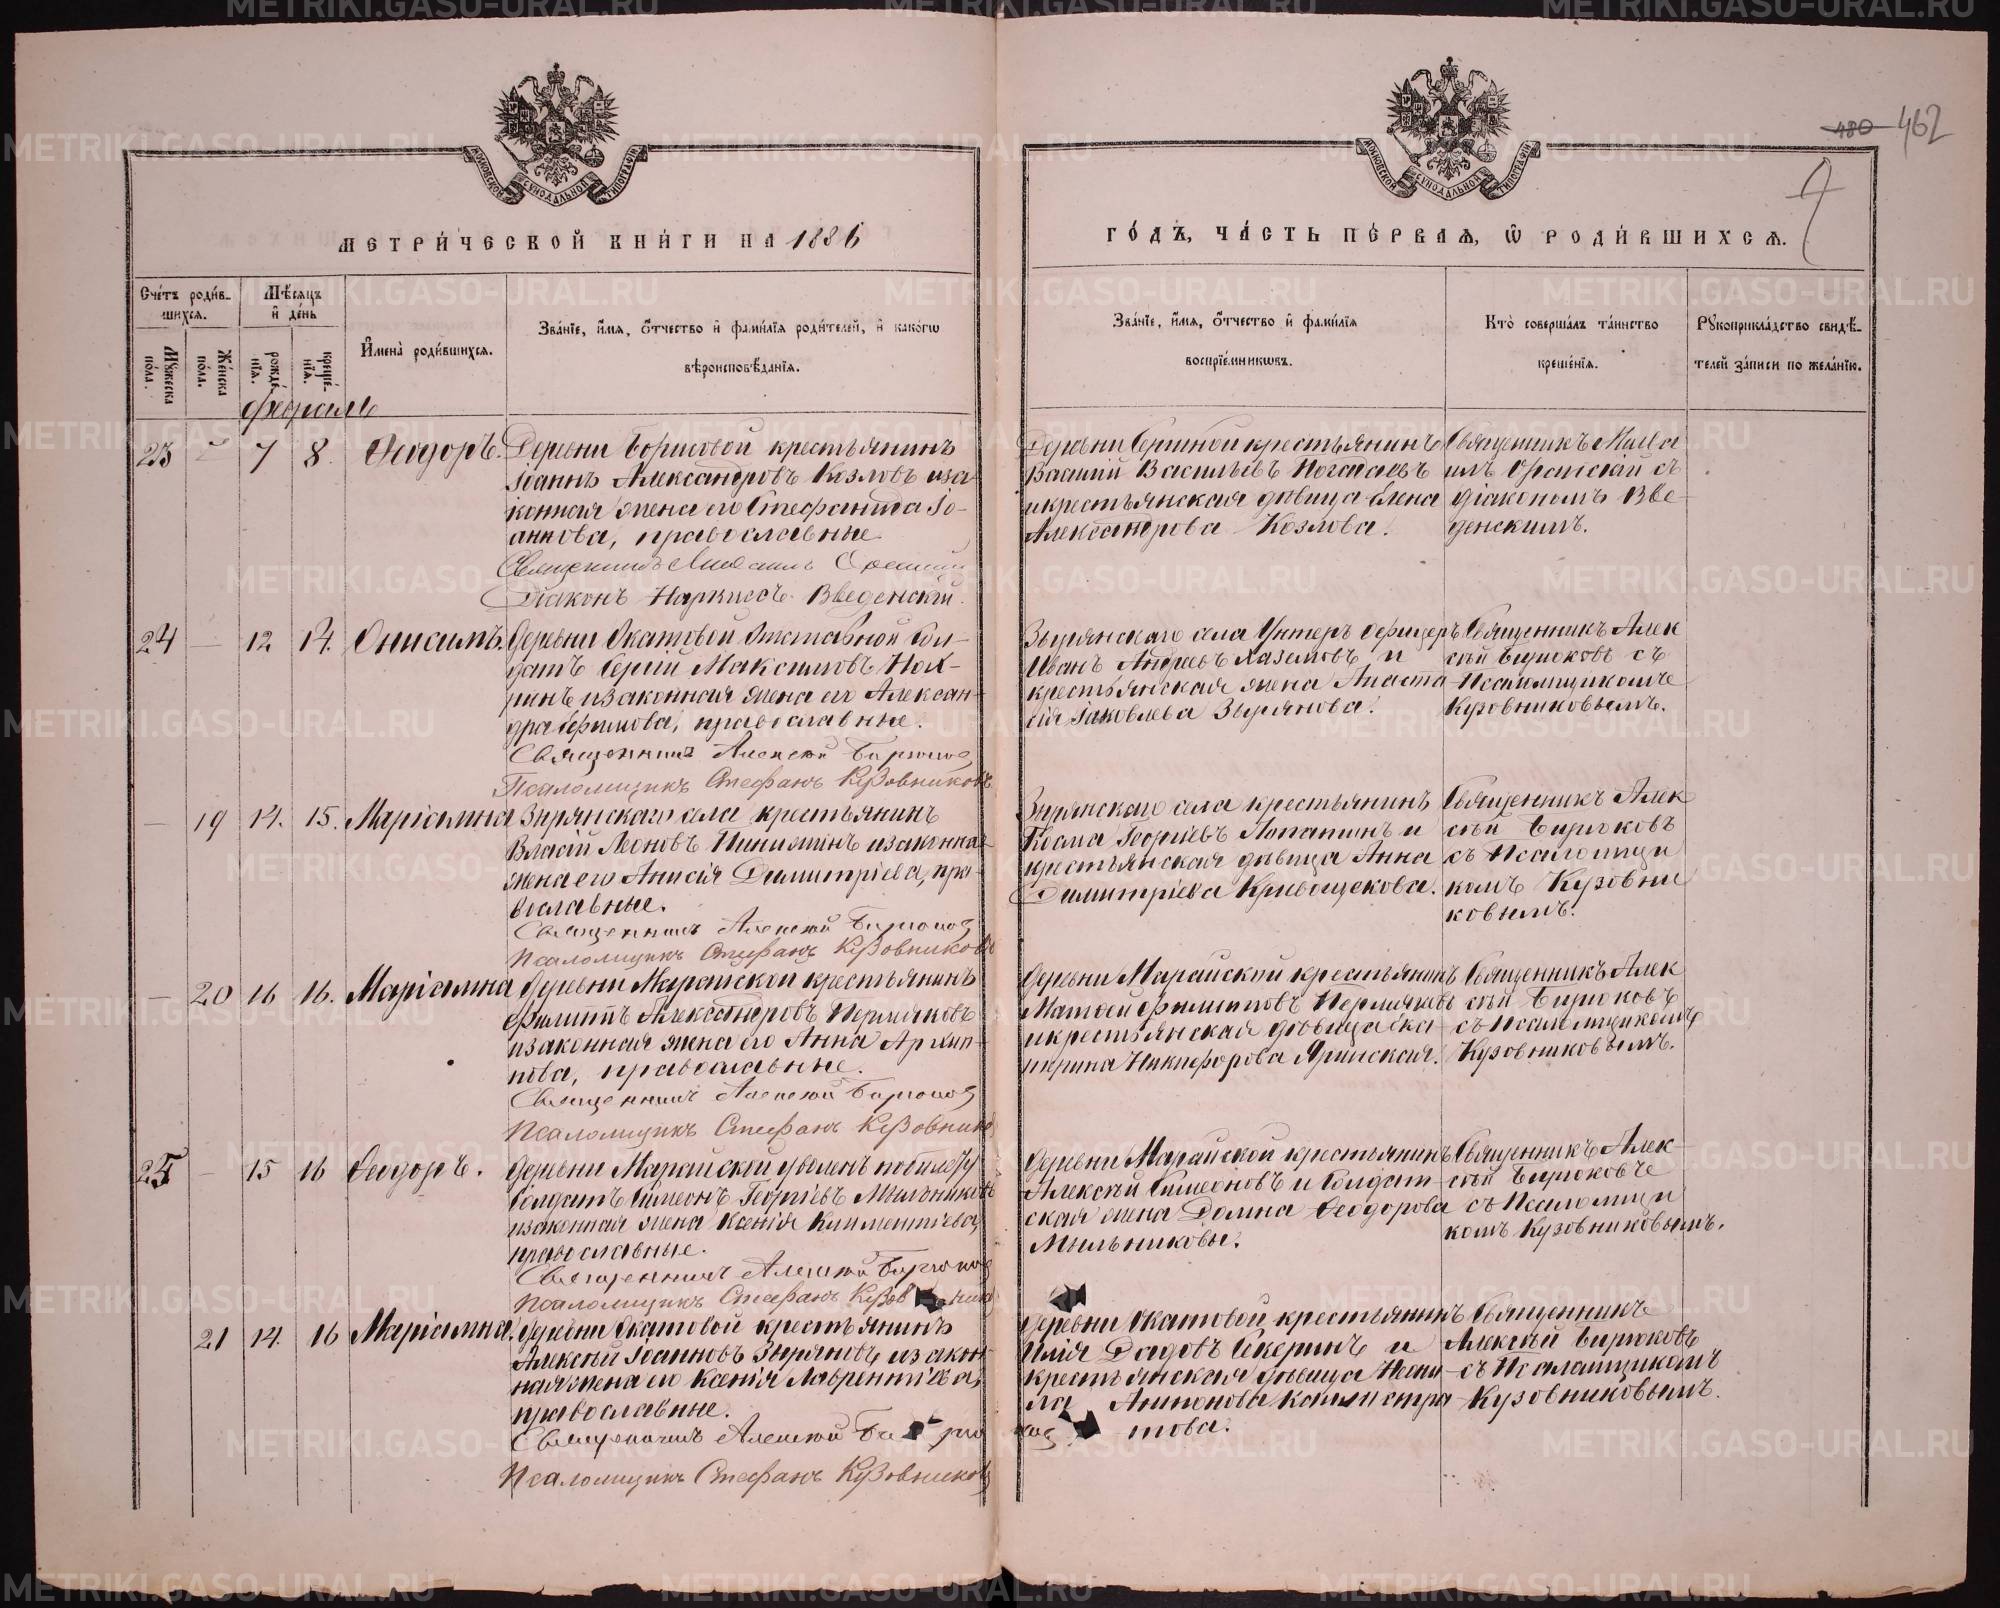 480 462
МОСКОВСКОЙ СѴНОДАЛЬНОЙ ТИПОГРАФІИ
МОСКОВСКОЙ СѴНОДАЛЬНОЙ ТИПОГРАФІИ
МЕТРИ́ЧЕСКОЙ КНИ́ГИ НА 1886
ГО́ДЪ, ЧА́СТЬ ПЕ́РВАѦ, Ѡ РОДИ́ВШИХСѦ.
Сче́тъ роди́в-
шихсѧ.
Мѣ́сѧцъ
и҆ де́нь
Мꙋ́жеска по́ла.
Же́нска по́ла.
рожде́нїѧ.
креще́нїѧ.
И҆мена̀ роди́вшихсѧ.
Зва́нїе, и҆́мѧ, ѻ҆́тчество и҆ фами́лїѧ роди́телей, и҆ како́гѡ
вѣроисповѣ́данїѧ.
Зва́нїе, и҆́мѧ, ѻ҆́тчество и҆ фами́лїѧ
воспрїе́мникѡвъ.
Кто̀ соверша́лъ та́инство
креще́нїѧ.
Рꙋкоприкла́дство свидѣ́-
телей за́писи по жела́нїю.
Февраль
23 – 7 8 Ѳеодоръ.
Деревни Борисовой крестьянинъ
Іоаннъ Александровъ Козловъ и за
конная жена его Стефанида Іо-
аннова, православные
Священникъ Михаилъ
Діаконъ Наркиссъ Введенскій
Деревни крестьянинъ
Василій Васильевъ
и крестьянская дѣвица Елена
Александрова Козлова.
Священникъ Миха
илъ съ
діакономъ Вве-
денскимъ.
24 – 12 14. Онисимъ.
Деревни Окатовой Отставной Сол-
датъ Сергій Максимовъ Нох-
ринъ и законная жена его Алексан-
дра Ефимова, православные.
Священникъ Алексѣй Бирюковъ
Псаломщикъ Стефанъ Кузовниковъ
Зырянскаго села Унтеръ Офицеръ
Иванъ Андреевъ и
крестьянская жена Анаста
сія Іаковлева Зырянова.
Священникъ Алек
сѣй Бирюковъ съ
Псаломщикомъ
Кузовниковымъ.
– 19 14. 15. Маріамна
Зырянскаго села крестьянинъ
Власій Леоновъ и законная
жена его Анисія Димитріева, пра-
вославные.
Священникъ Алексѣй Бирюковъ
Псаломщикъ Стефанъ Кузовниковъ
Зырянскаго села крестьянинъ
Косма Георгіевъ Лопатинъ и
крестьянская дѣвица Анна
Димитріева Кривощекова.
Священникъ Алек
сѣй Бирюковъ
съ Псаломщи
комъ Кузовни
ковымъ.
– 20 16 16. Маріамна
Деревни Марайской крестьянинъ
Филиппъ Александровъ Пермяковъ
и законная жена его Анна Архип-
пова, православные.
Священникъ Алексѣй Бирюковъ
Псаломщикъ Стефанъ Кузовников
Деревни Марайской крестьянинъ
Матѳей Филипповъ Пермяковъ
и крестьянская дѣвица Ека-
терина Никифорова Яринская.
Священникъ Алек
сѣй Бирюковъ
съ Псаломщикомъ
Кузовниковымъ.
25 – 15 16 Ѳеодоръ.
Деревни Марайской уволенъ по билету
Солдатъ Симеонъ Георгіевъ Мыльниковъ
и законная жена Ксенія Климентіева,
православные.
Священникъ Алексѣй Бирюков
Псаломщикъ Стефанъ Кузов ник
Деревни Марайской крестьянинъ
Алексѣй Симеоновъ и Солдат-
ская жена Домна Ѳеодорова
Мыльниковы.
Священникъ Алек-
сѣй Бирюковъ
съ Псаломщи
комъ Кузовниковымъ.
21 14. 16 Маріамна.
Деревни Окатовой крестьянинъ
Алексѣй Іоанновъ Зыряновъ и закон-
ная жена его Ксенія Лаврентіева,
православные.
Священникъ Алексѣй Бирю
ков
Псаломщикъ Стефанъ Кузовниковъ
Деревни Окатовой крестьянинъ
Илія Секеринъ и
крестьянская дѣвица Неони
ла Антонова Калистра
това.
Священникъ
Алексѣй Бирюковъ
съ Псаломщикомъ
Кузовниковымъ.
METRIKI.GASO-URAL.RU